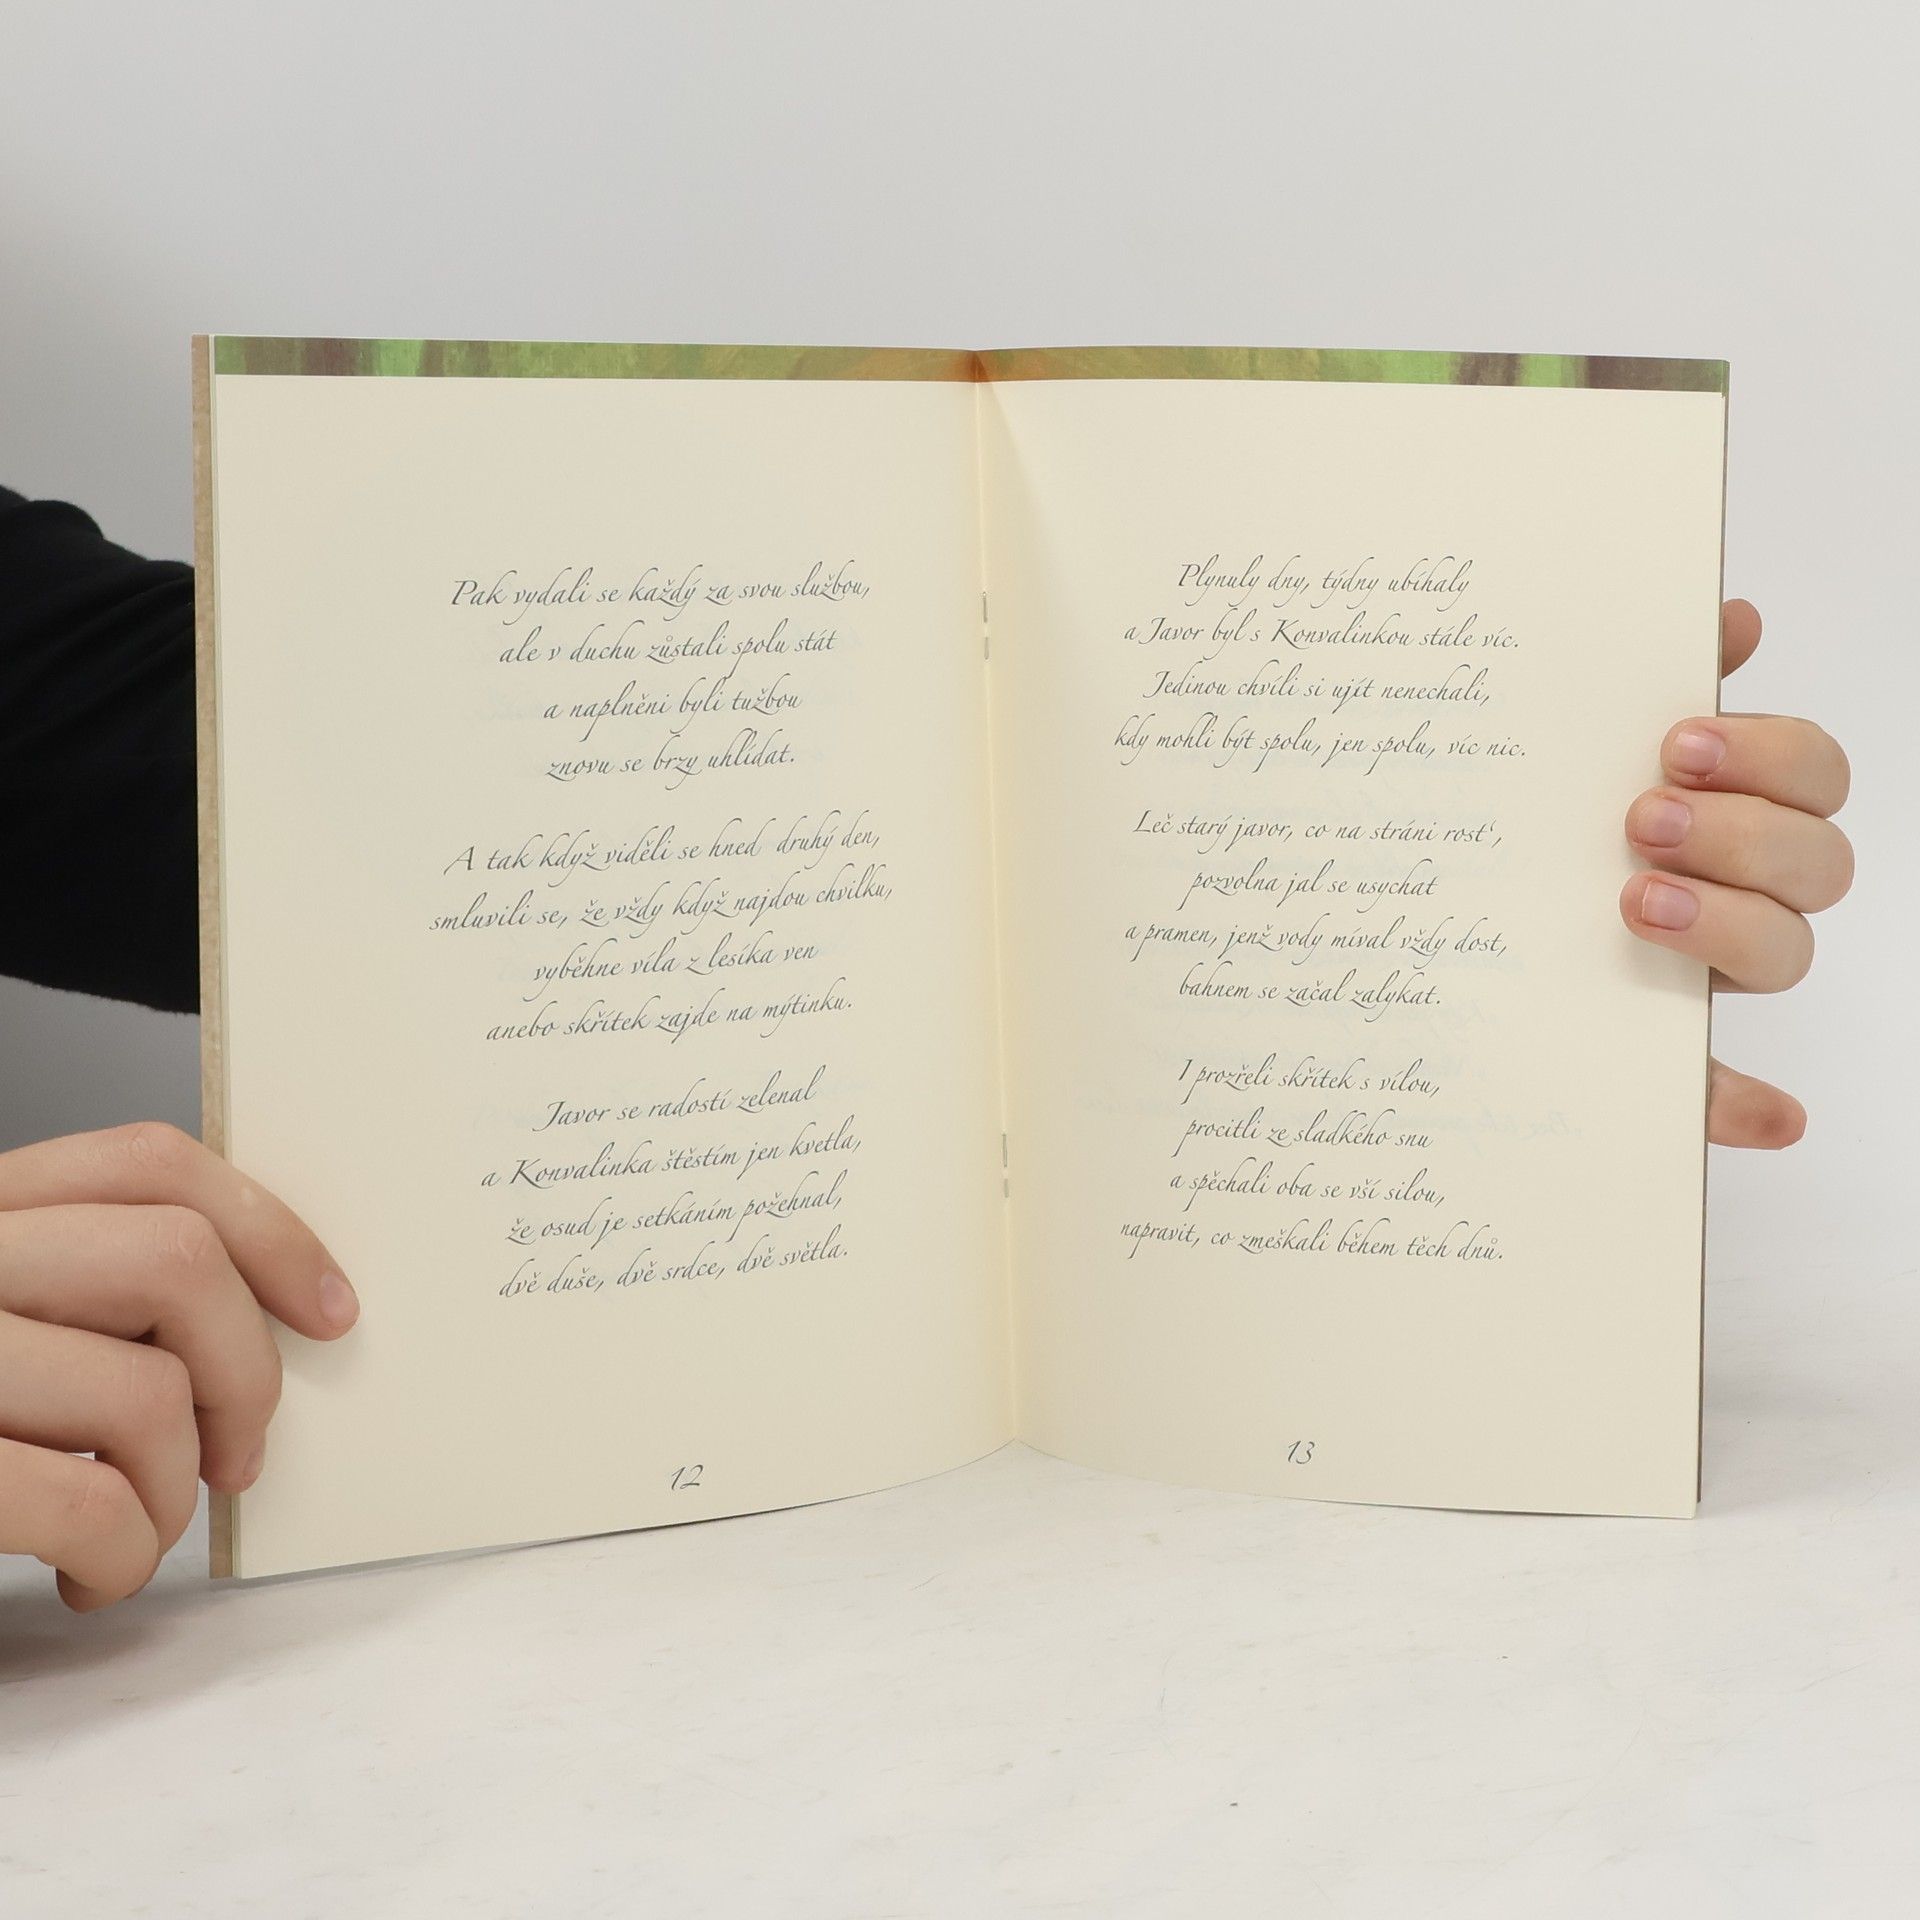 Pak vydali se každý za svou službou,
ale v duchu zůstali spolu stát
a naplněni byli tužbou
znovu se brzy uhlídat.
A tak když viděli se hned druhý den,
smluvili se, že vždy když najdou chvilku,
vyběhne víla z lesíka ven
anebo skřítek zajde na mýtinku.
Javor se radostí zelenal
a Konvalinka štěstím jen kvetla,
že osud je setkáním požehnal,
dvě duše, dvě srdce, dvě světla.
12
Plynuly dny, týdny ubíhaly
a Javor byl s Konvalinkou stále víc.
Jedinou chvíli si ujít nenechali,
kdy mohli být spolu, jen spolu, víc nic.
Leč starý javor, co na stráni rost‘,
pozvolna jal se usychat
a pramen, jenž vody míval vždy dost,
bahnem se začal zalykat.
I prozřeli skřítek s vílou,
procitli ze sladkého snu
a spěchali oba se vší silou,
napravit, co zmeškali během těch dnů.
13